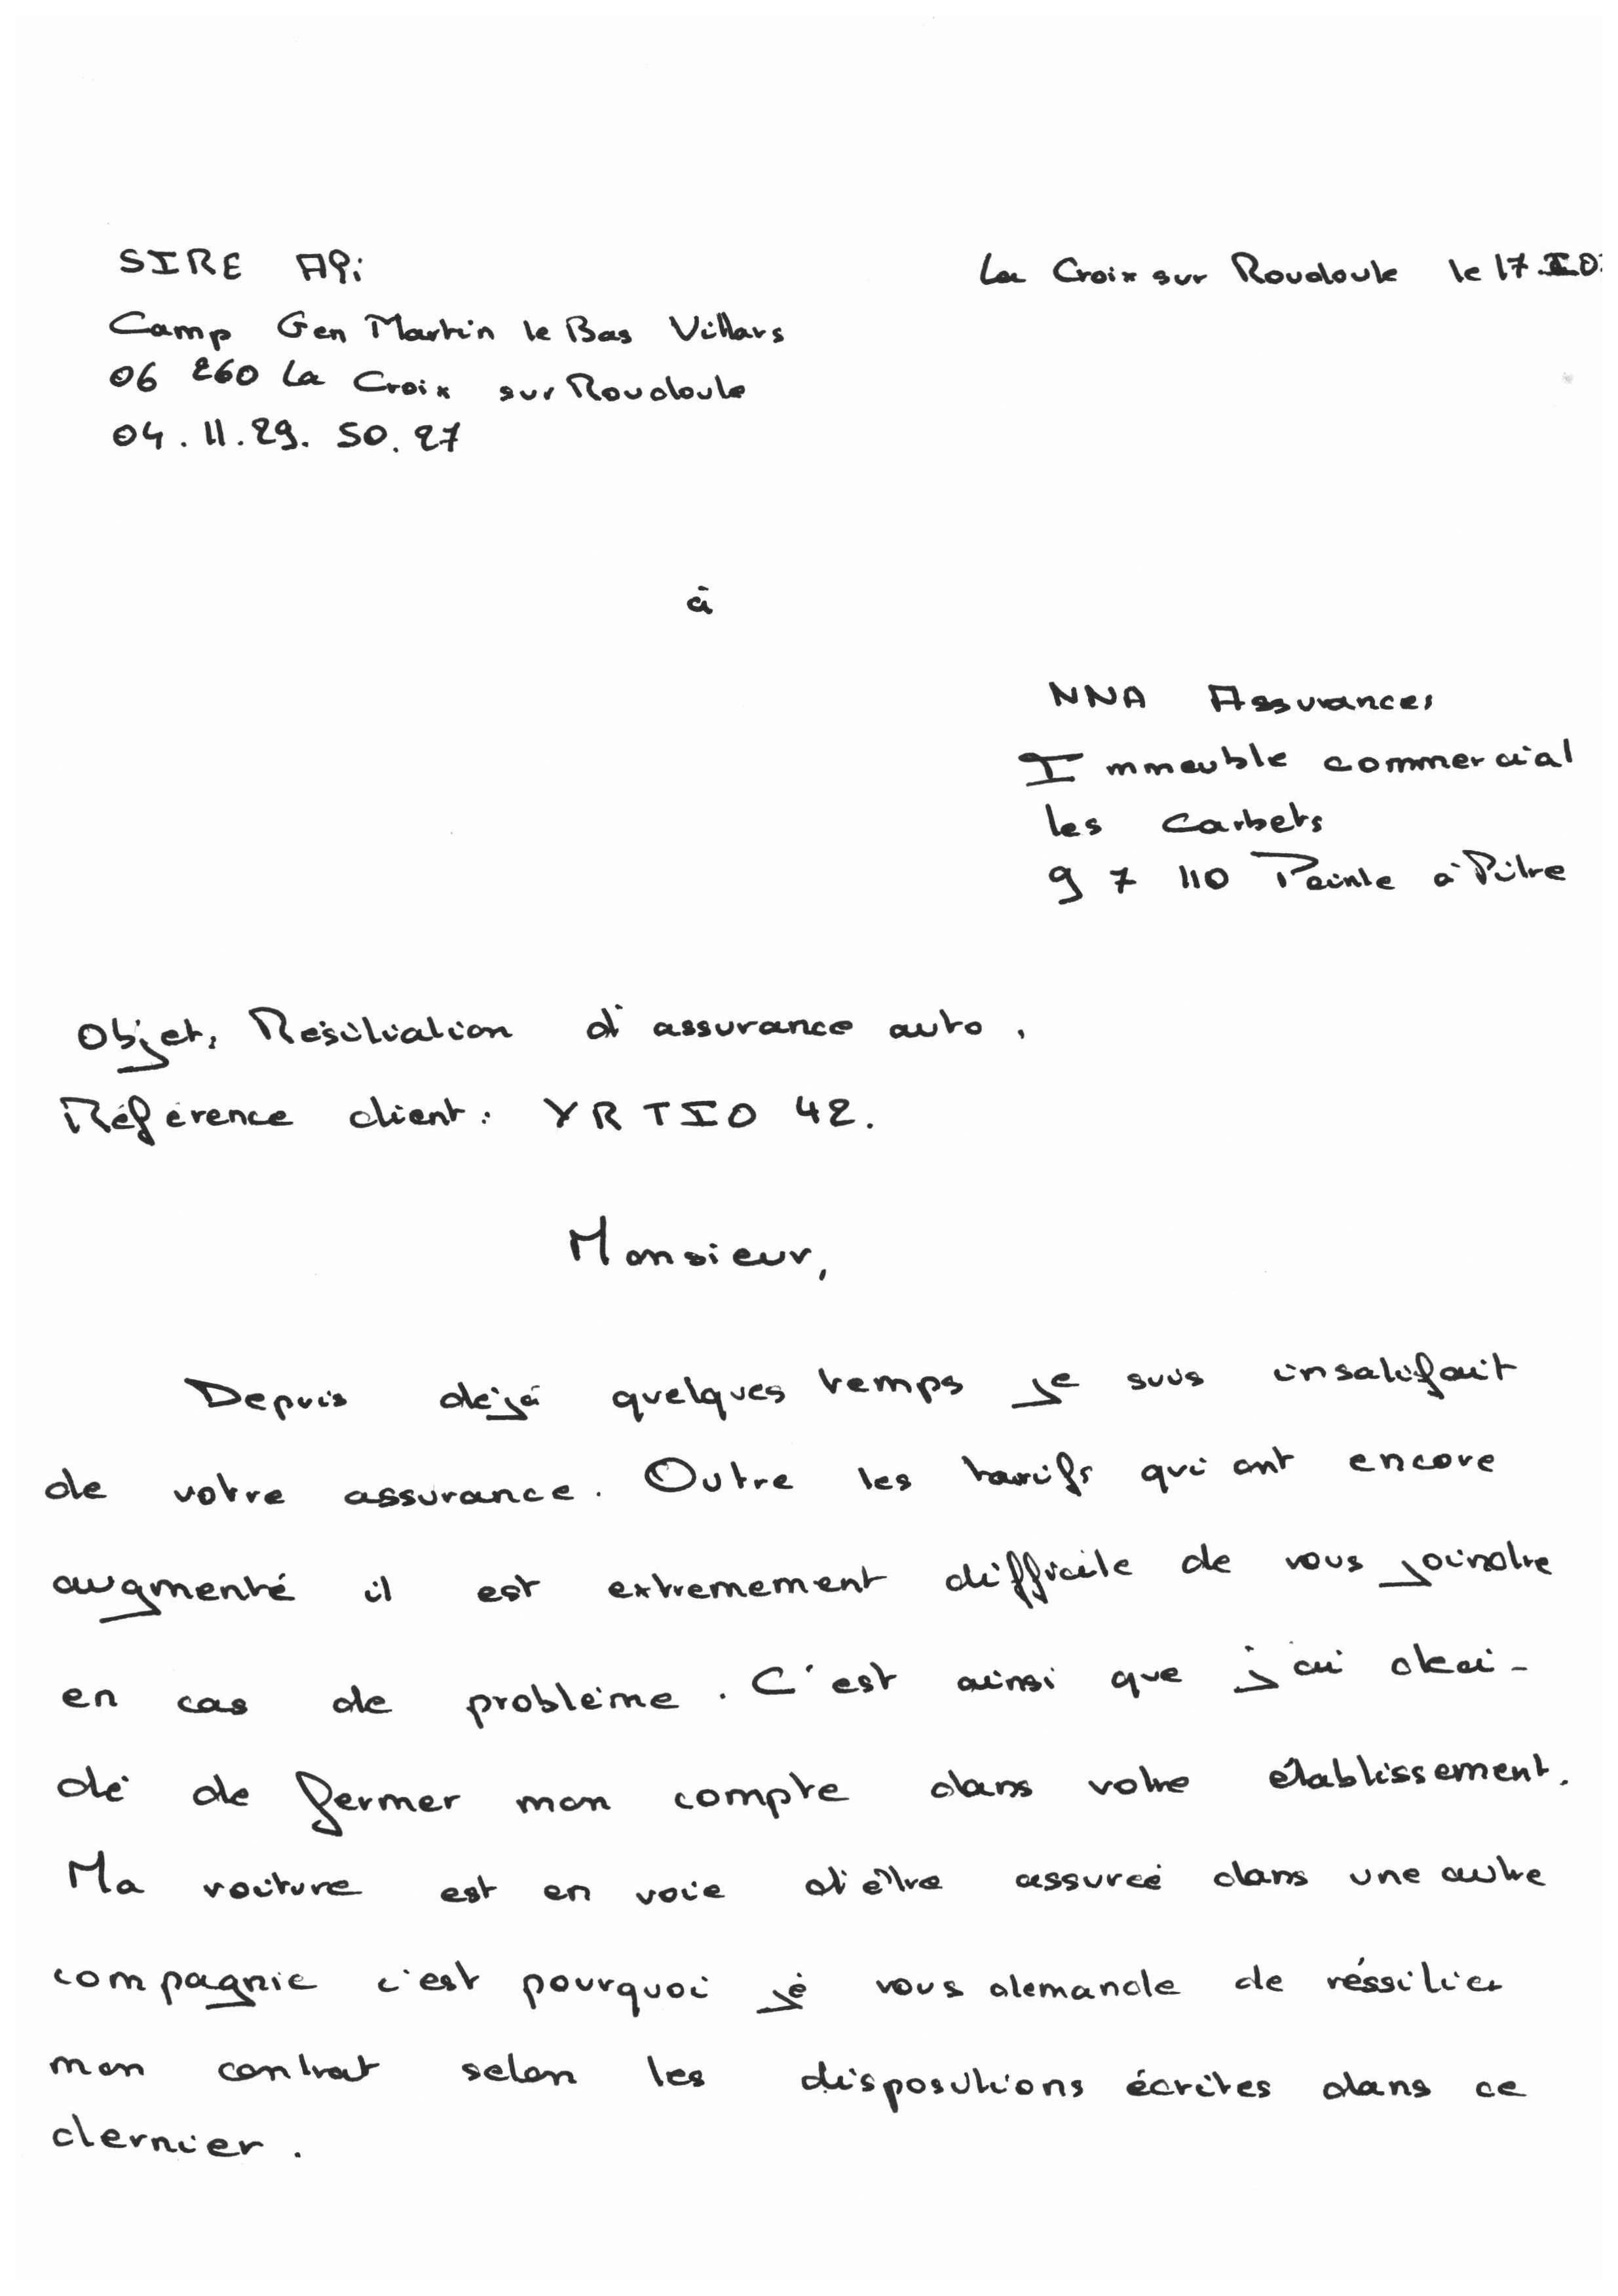 SIRE Api
La Croix sur Roudoule le 17.10
Camp Gen Martin le Bas Villars
06 260 La Croix sur Roudoule
04.11.29.50.27
à
NNA Assurances
Immeuble commercial
les Carbets
97 110 Pointe à Pitre
Objet: Résiliation d'assurance auto.
Référence client: YRTIO 42.
Monsieur,
Depuis déjà quelques temps je suis insatifait
de votre assurance. Outre les tarifs qui ont encore
augmenté il est extremement difficile de vous joindre
en cas de problème. C'est ainsi que j'ai déci-
dé de fermer mon compte dans votre établissement.
Ma voiture est en voie d'être assurée dans une autre
compagnie c'est pourquoi je vous demande de réssilier
mon contrat selon les dispositions écrites dans ce
dernier.